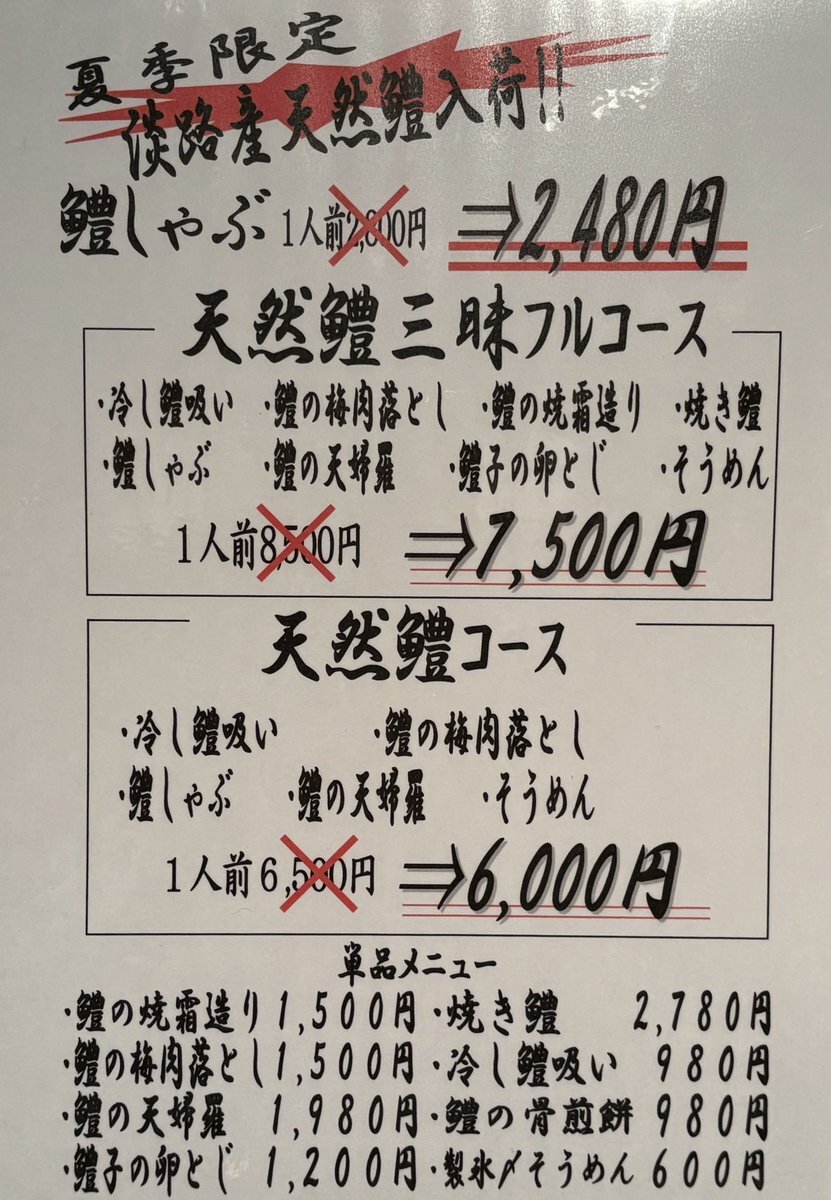 夏季限定
淡路産天然鱧入荷!!
鱧しゃぶ 1人前2,800円 ⇒2,480円
天然鱧三昧フルコース
・冷し鱧吸い ・鱧の梅肉落とし ・鱧の焼霜造り ・焼き鱧
・鱧しゃぶ ・鱧の天婦羅 ・鱧子の卵とじ ・そうめん
1人前8,500円 ⇒7,500円
天然鱧コース
・冷し鱧吸い ・鱧の梅肉落とし
・鱧しゃぶ ・鱧の天婦羅 ・そうめん
1人前6,500円 ⇒6,000円
単品メニュー
・鱧の焼霜造り 1,500円 ・焼き鱧 2,780円
・鱧の梅肉落とし 1,500円 ・冷し鱧吸い 980円
・鱧の天婦羅 1,980円 ・鱧の骨煎餅 980円
・鱧子の卵とじ 1,200円 ・製氷〆そうめん 600円